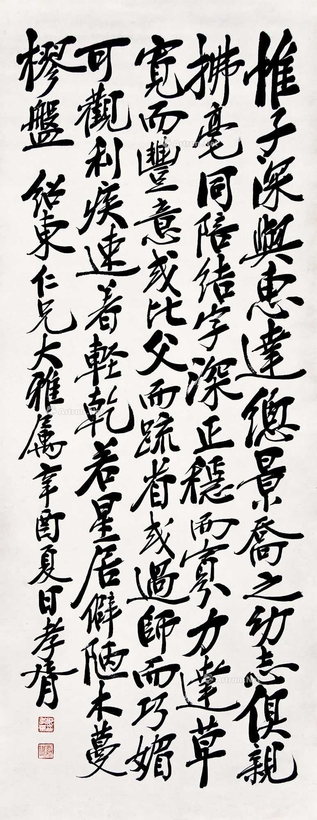 惟子深與惠達總景喬之幼志俱親
拂毫同陪結字深正穩而寡力達草
寬而豐意或比父而疏省或過師而巧媚
可觀利疾速着輕乾若星居僻陋木蔓
樛盤 紹東仁兄大雅屬辛酉夏日孝胥